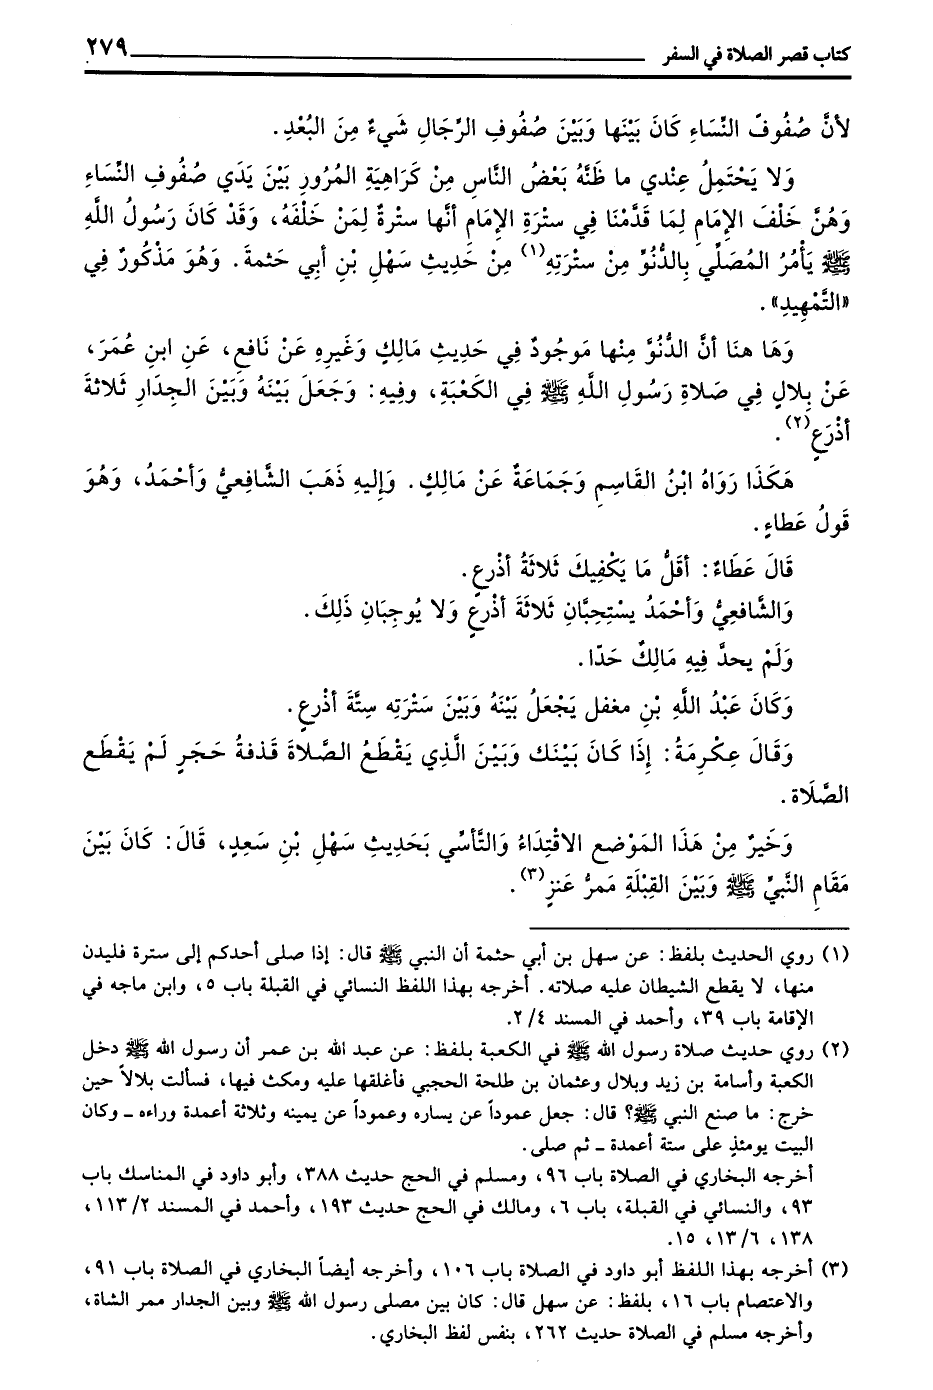 كتاب قصر الصلاة في السفر ٢٧٩
لأنَّ صُفُوفَ النِّسَاءِ كَانَ بَيْنَها وَبَيْنَ صُفُوفِ الرِّجَالِ شَيءٌ مِنَ البُعْدِ.
وَلا يَحْتَمِلُ عِنْدي ما ظَنَّهُ بَعْضُ النَّاسِ مِنْ كَرَاهِيَةِ المُرُورِ بَيْنَ يَدَي صُفُوفِ النِّسَاءِ
وَهُنَّ خَلْفَ الإمَامِ لِمَا قَدَّمْنَا فِي سترَةِ الإمَامِ أنَّها سترةٌ لِمَنْ خَلْفَهُ، وَقَدْ كَانَ رَسُولُ اللَّهِ
ﷺ يَأْمُرُ المُصَلِّي بِالدُّنُوِّ مِنْ سترَتِهِ(١) مِنْ حَدِيثِ سَهْلِ بْنِ أبي حَثمةَ. وَهُوَ مَذْكُورٌ فِي
«التَّمْهِيدِ».
وَهَا هنَا أنَّ الدُّنُوَّ مِنْها مَوجُودٌ فِي حَدِيثِ مَالِكٍ وَغَيرِهِ عَنْ نَافعٍ، عَنِ ابنِ عُمَرَ،
عَنْ بِلالٍ فِي صَلاةِ رَسُولِ اللَّهِ ﷺ فِي الكَعْبَةِ، وفِيهِ: وَجَعَلَ بَيْنَهُ وَبَيْنَ الجِدَارِ ثَلاثةَ
أذْرَعٍ(٢).
هَكَذَا رَوَاهُ ابْنُ القَاسِمِ وَجَمَاعَةٌ عَنْ مَالِكٍ. وَإِليهِ ذَهَبَ الشَّافِعيُّ وَأحْمَدُ، وَهُوَ
قَولُ عَطاءٍ.
قَالَ عَطَاءٌ: أقَلُّ مَا يَكْفِيكَ ثَلاثَةُ أذْرعٍ.
وَالشَّافعِيُّ وَأحْمَدُ يسْتِحِبَّانِ ثَلاثَةَ أذْرعٍ وَلا يُوجِبَانِ ذَلِكَ.
وَلَمْ يحدَّ فِيهِ مَالِكٌ حَدّا.
وَكَانَ عَبْدُ اللَّهِ بْنِ مغفل يَجْعَلُ بَيْنَهُ وَبَيْنَ سَتْرَتِه سِتَّةَ أذْرعٍ.
وَقَالَ عِكْرِمَةُ: إِذَا كَانَ بَيْنَك وَبَيْنَ الَّذِي يَقْطَعُ الصَّلاةَ قَذفةُ حَجَرٍ لَمْ يَقْطَعِ
الصَّلَاة.
وَخَيرٌ مِنْ هَذَا المَوْضعِ الاقْتِدَاءُ وَالتَّأسِّي بَحَدِيثِ سَهْلِ بْنِ سَعِدٍ، قَالَ: كَانَ بَيْنَ
مَقَامِ النَّبيِّ ﷺ وَبَيْنَ القِبْلَةِ مَمرُّ عَنزٍ(٣).
(١) روي الحديث بلفظ: عن سهل بن أبي حثمة أن النبي ﷺ قال: إذا صلى أحدكم إلى سترة فليدن
منها، لا يقطع الشيطان عليه صلاته. أخرجه بهذا اللفظ النسائي في القبلة باب ٥، وابن ماجه في
الإقامة باب ٣٩، وأحمد في المسند ٤/ ٢.
(٢) روي حديث صلاة رسول الله ﷺ في الكعبة بلفظ: عن عبد الله بن عمر أن رسول الله ﷺ دخل
الكعبة وأسامة بن زيد وبلال وعثمان بن طلحة الحجبي فأغلقها عليه ومكث فيها، فسألت بلالاً حين
خرج: ما صنع النبي ﷺ؟ قال: جعل عموداً عن يساره وعموداً عن يمينه وثلاثة أعمدة وراءه ـ وكان
البيت يومئذٍ على ستة أعمدة ـ ثم صلى.
أخرجه البخاري في الصلاة باب ٩٦، ومسلم في الحج حديث ٣٨٨، وأبو داود في المناسك باب
٩٣، والنسائي في القبلة، باب ٦، ومالك في الحج حديث ١٩٣، وأحمد في المسند ٢/ ١١٣،
١٣٨، ٦/ ١٣، ١٥.
(٣) أخرجه بهذا اللفظ أبو داود في الصلاة باب ١٠٦، وأخرجه أيضاً البخاري في الصلاة باب ٩١،
والاعتصام باب ١٦، بلفظ: عن سهل قال: كان بين مصلى رسول الله ﷺ وبين الجدار ممر الشاة،
وأخرجه مسلم في الصلاة حديث ٢٦٢، بنفس لفظ البخاري.